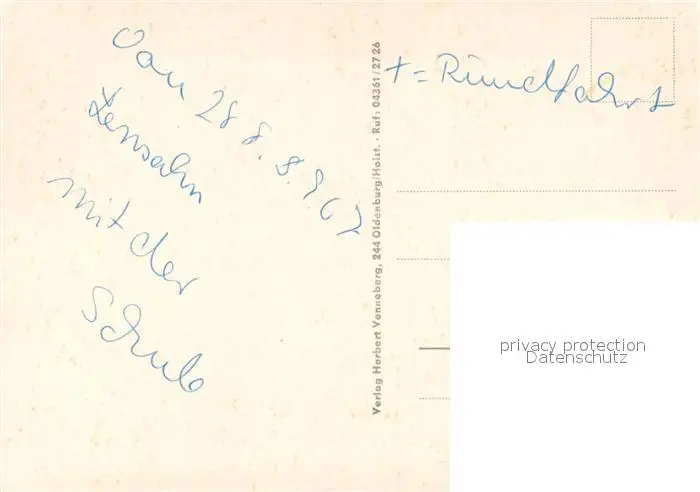 Von 28.8.967
Lensahn
mit der
Schule
Verlag Herbert Venneberg, 244 Oldenburg/Holst. · Ruf: 04361/2726
+ = Rundfahrt
privacy protection
Datenschutz